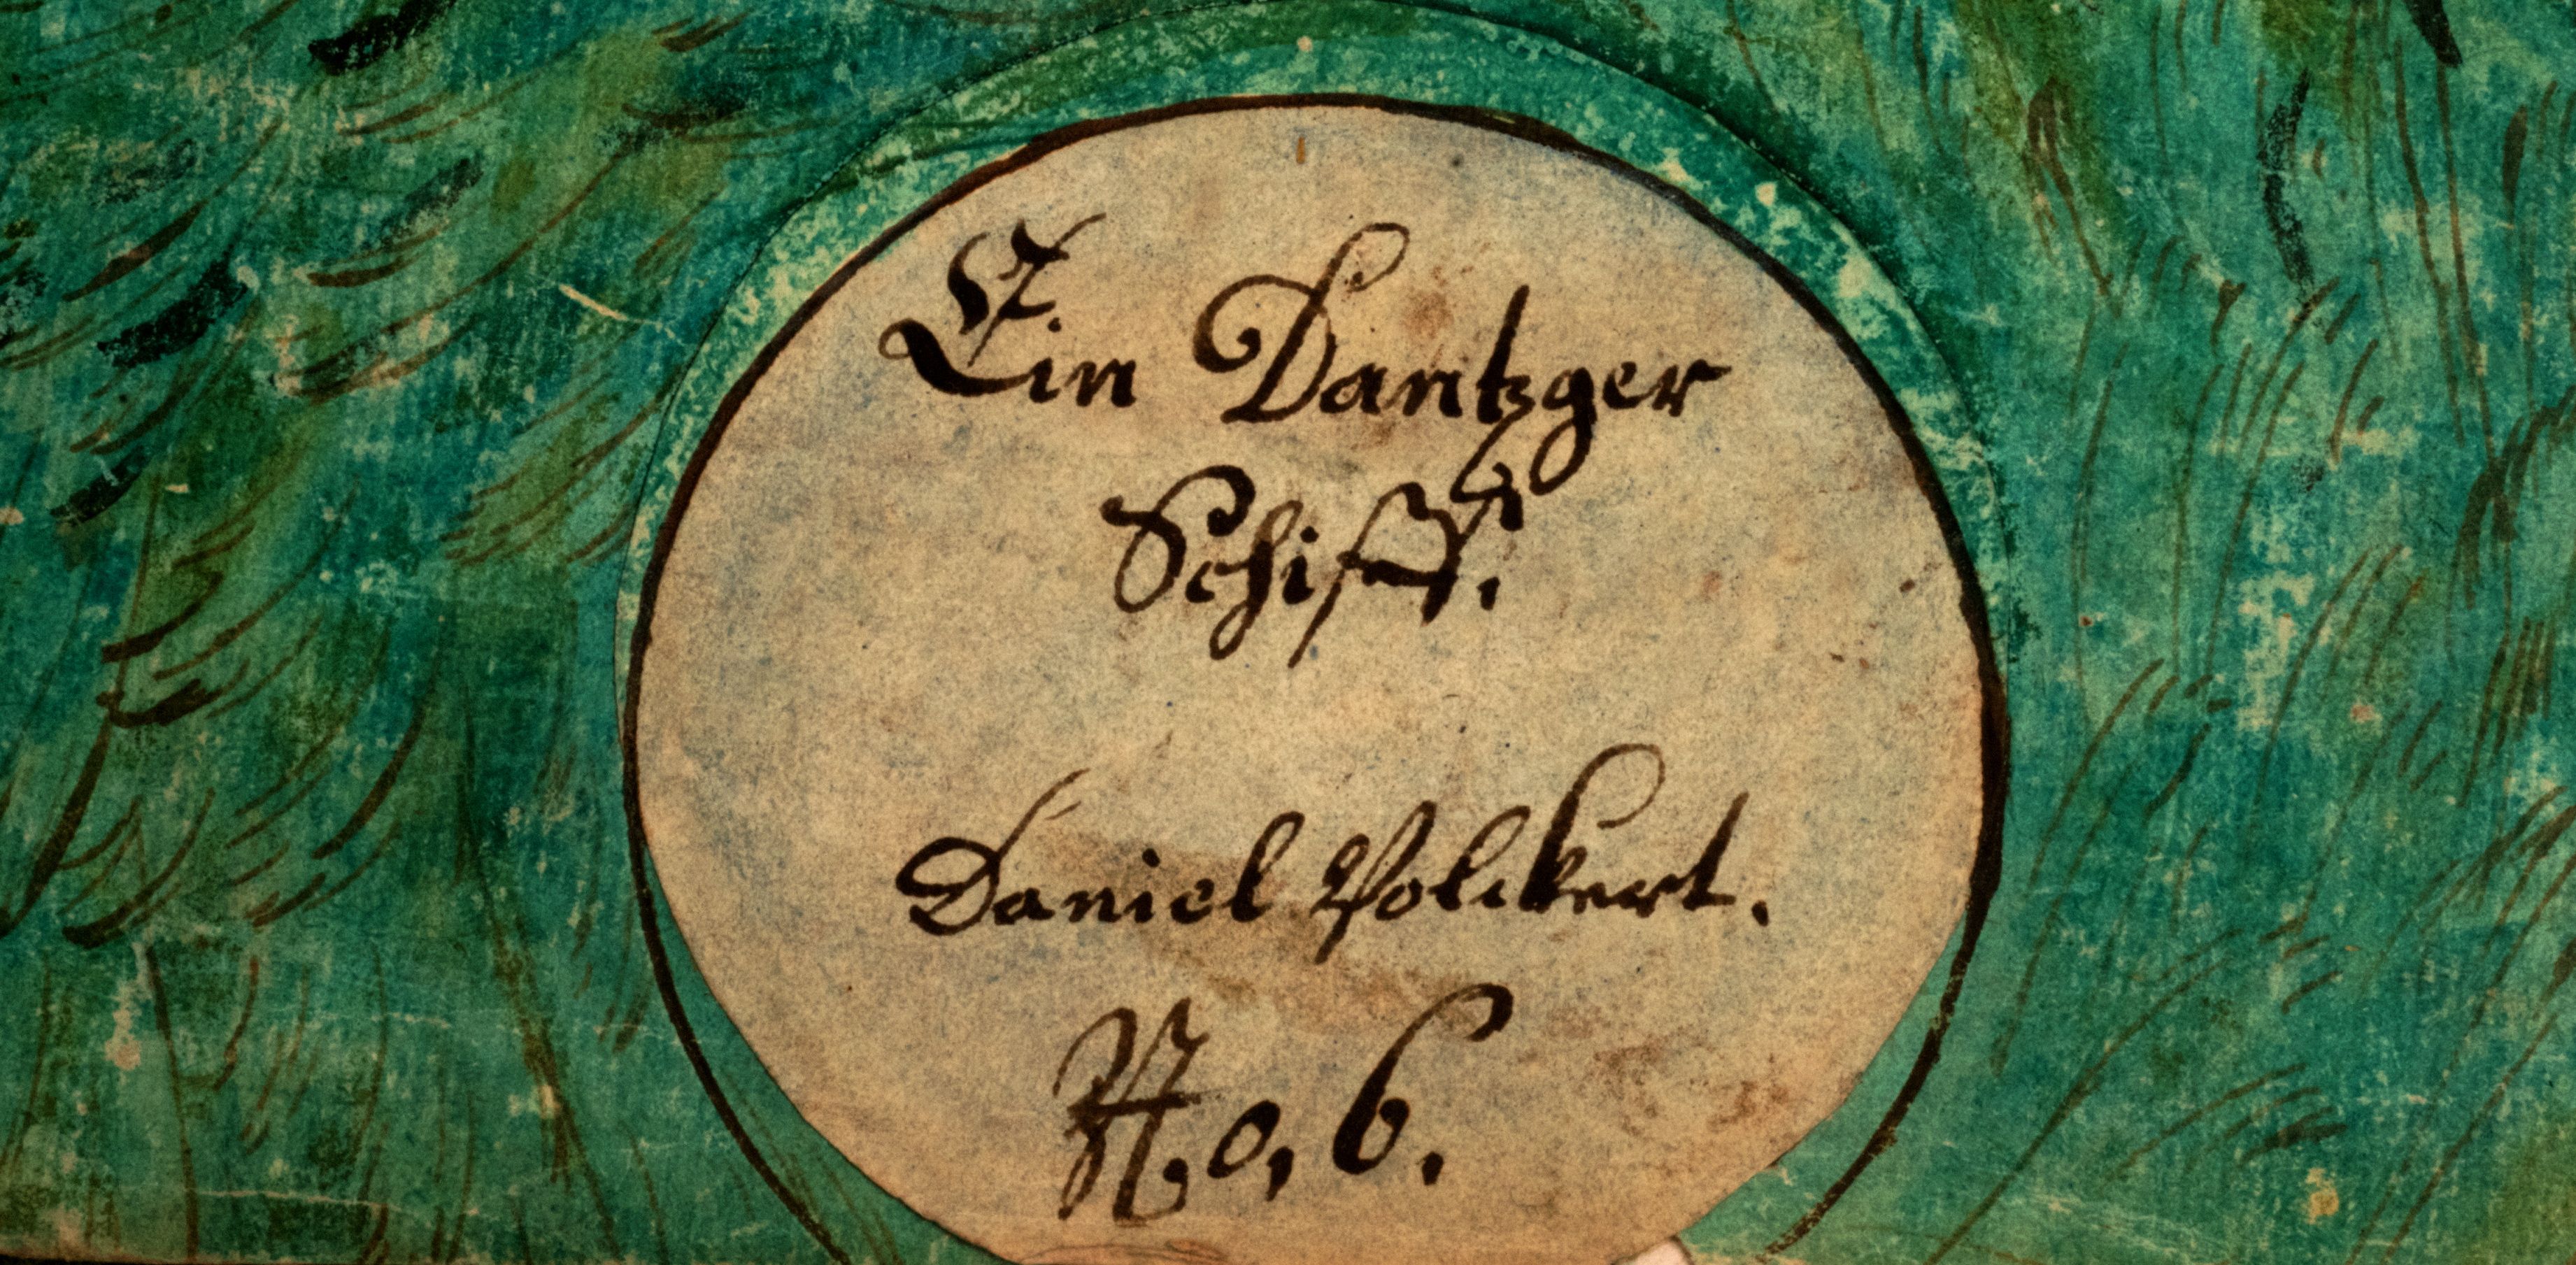 Ein Dantzger
Schiff.
Daniel Volckert.
N.o, 6.